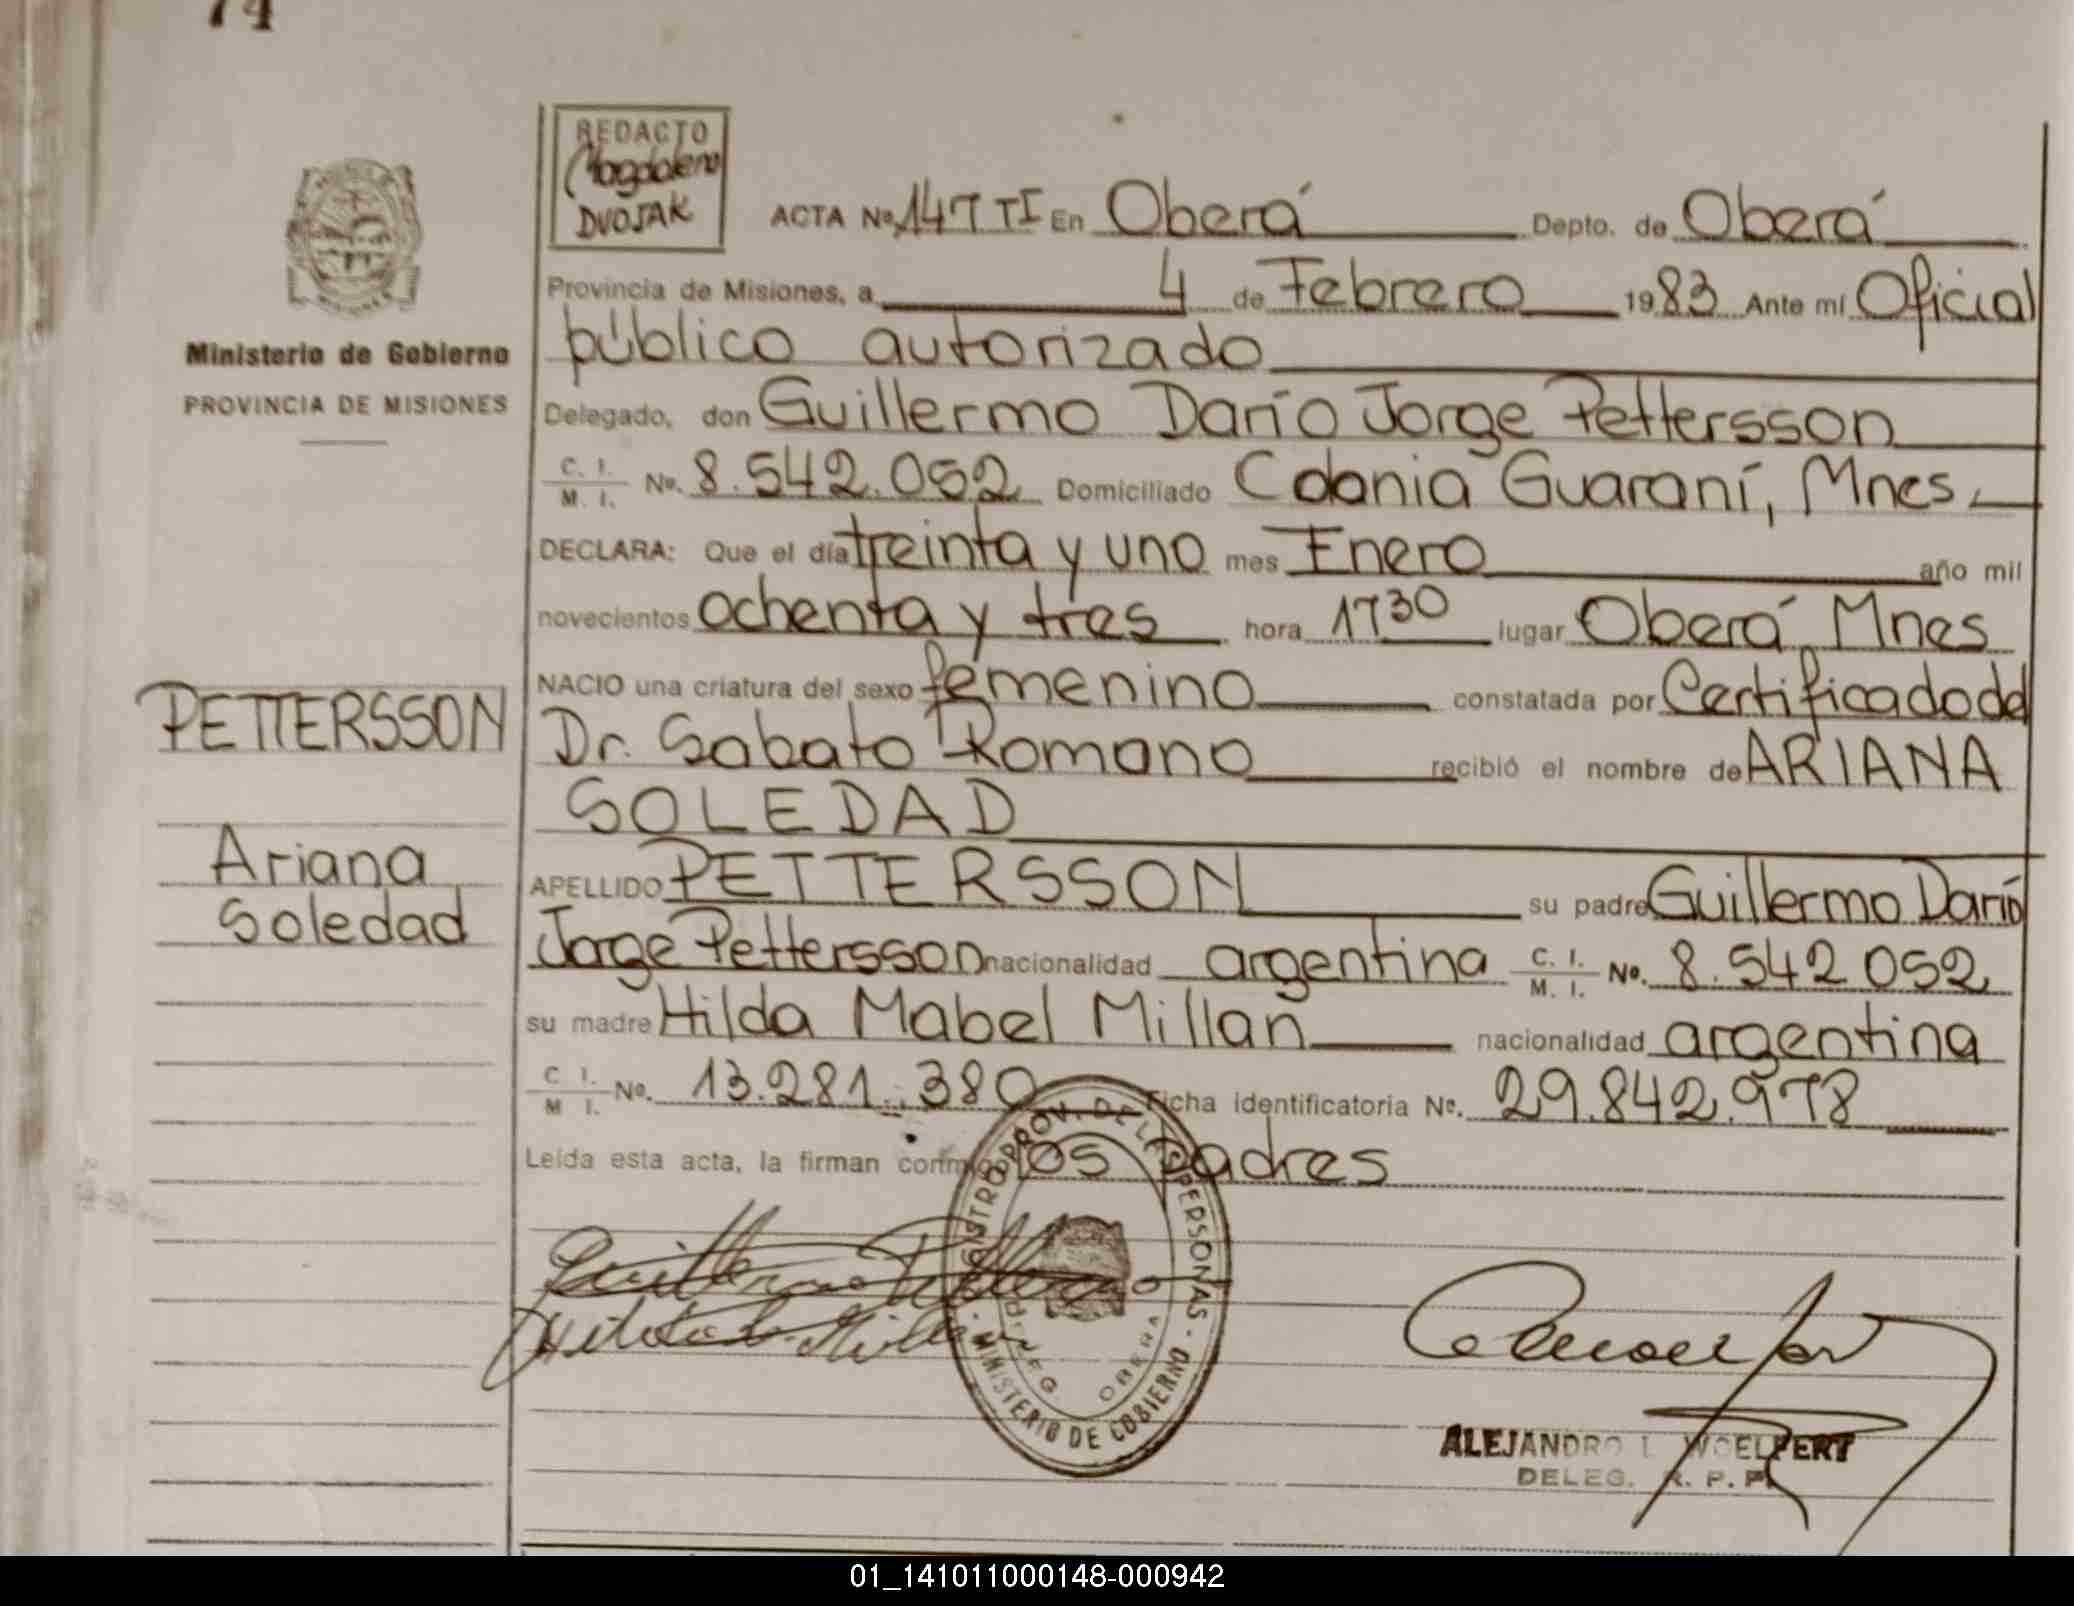 74
REDACTO
Magdalena
DVOJAK
ACTA Nº 147 TI En Oberá Depto. de Oberá
Provincia de Misiones, a 4 de Febrero 1983 Ante mí Oficial
público autorizado
Delegado, don Guillermo Darío Jorge Pettersson
C. I. / M. I. Nº. 8.542.052 Domiciliado Colonia Guaraní, Mnes
DECLARA: Que el día treinta y uno mes Enero año mil
novecientos ochenta y tres hora 17 30 lugar Oberá Mnes
NACIO una criatura del sexo femenino constatada por Certificado del
Dr. Sabato Romano recibió el nombre de ARIANA
SOLEDAD
APELLIDO PETTERSSON su padre Guillermo Darío
Jorge Pettersson nacionalidad argentina C. I. / M. I. Nº. 8.542.052
su madre Hilda Mabel Millan nacionalidad argentina
C. I. / M. I. Nº. 13.281.380 Ficha identificatoria Nº. 29.842.978
Leída esta acta, la firman conmigo los padres
Ministerio de Gobierno
PROVINCIA DE MISIONES
PETTERSSON
Ariana
Soledad
REGISTRO PROV. DE LAS PERSONAS
MINISTERIO DE GOBIERNO
OBERA
ALEJANDRO L. WOELFERT
DELEG. R. P. P.
01_141011000148-000942